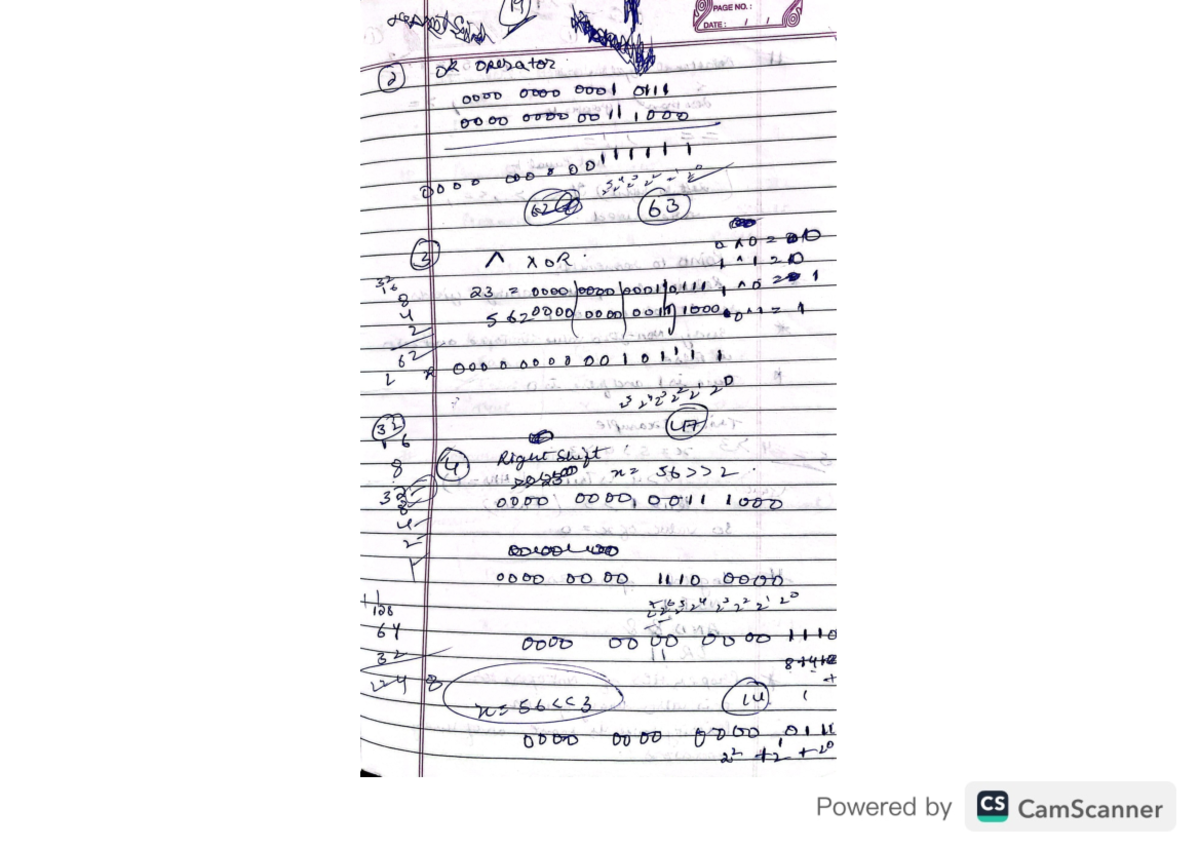 19
PAGE NO.:
DATE: / /
2 OR operator
0000 0000 0001 0111
0000 0000 0011 1000
0000 0000 0011 1111
63
3 ^ XOR
0 ^ 0 = 0
1 ^ 1 = 0
23 = 0000 0000 0001 0111 1 ^ 0 = 1
56 = 0000 0000 0011 1000 0 ^ 1 = 1
32
16
8
4
2
62
0000 0000 0010 1111
2⁵ 2⁴ 2³ 2² 2¹ 2⁰
47
32
16
8
4 Right Shift
x = 56>>2
0000 0000 0011 1000
32
8
4
2
0000 0000 1110 0000
2⁷ 2⁶ 2⁵ 2⁴ 2³ 2² 2¹ 2⁰
128
64
32
224
0000 0000 0000 1110
8+4+2
14
x = 56<<3
0000 0000 0000 0111
2² + 2¹ + 2⁰
Powered by CS CamScanner